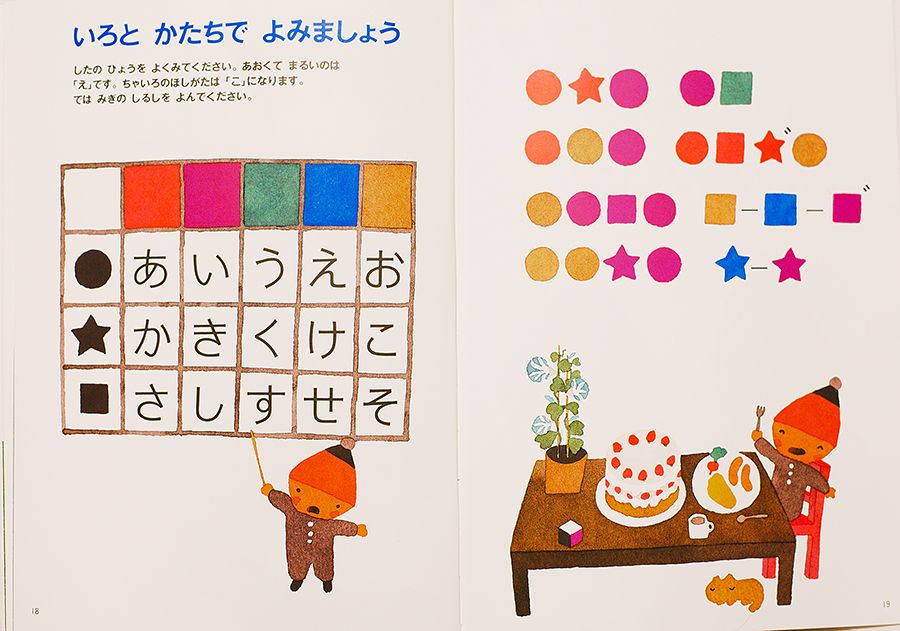 いろと かたちで よみましょう
したの ひょうを よくみてください。あおくて まるいのは
「え」です。ちゃいろのほしがたは 「こ」になります。
では みぎの しるしを よんでください。
あ い う え お
か き く け こ
さ し す せ そ
18
19